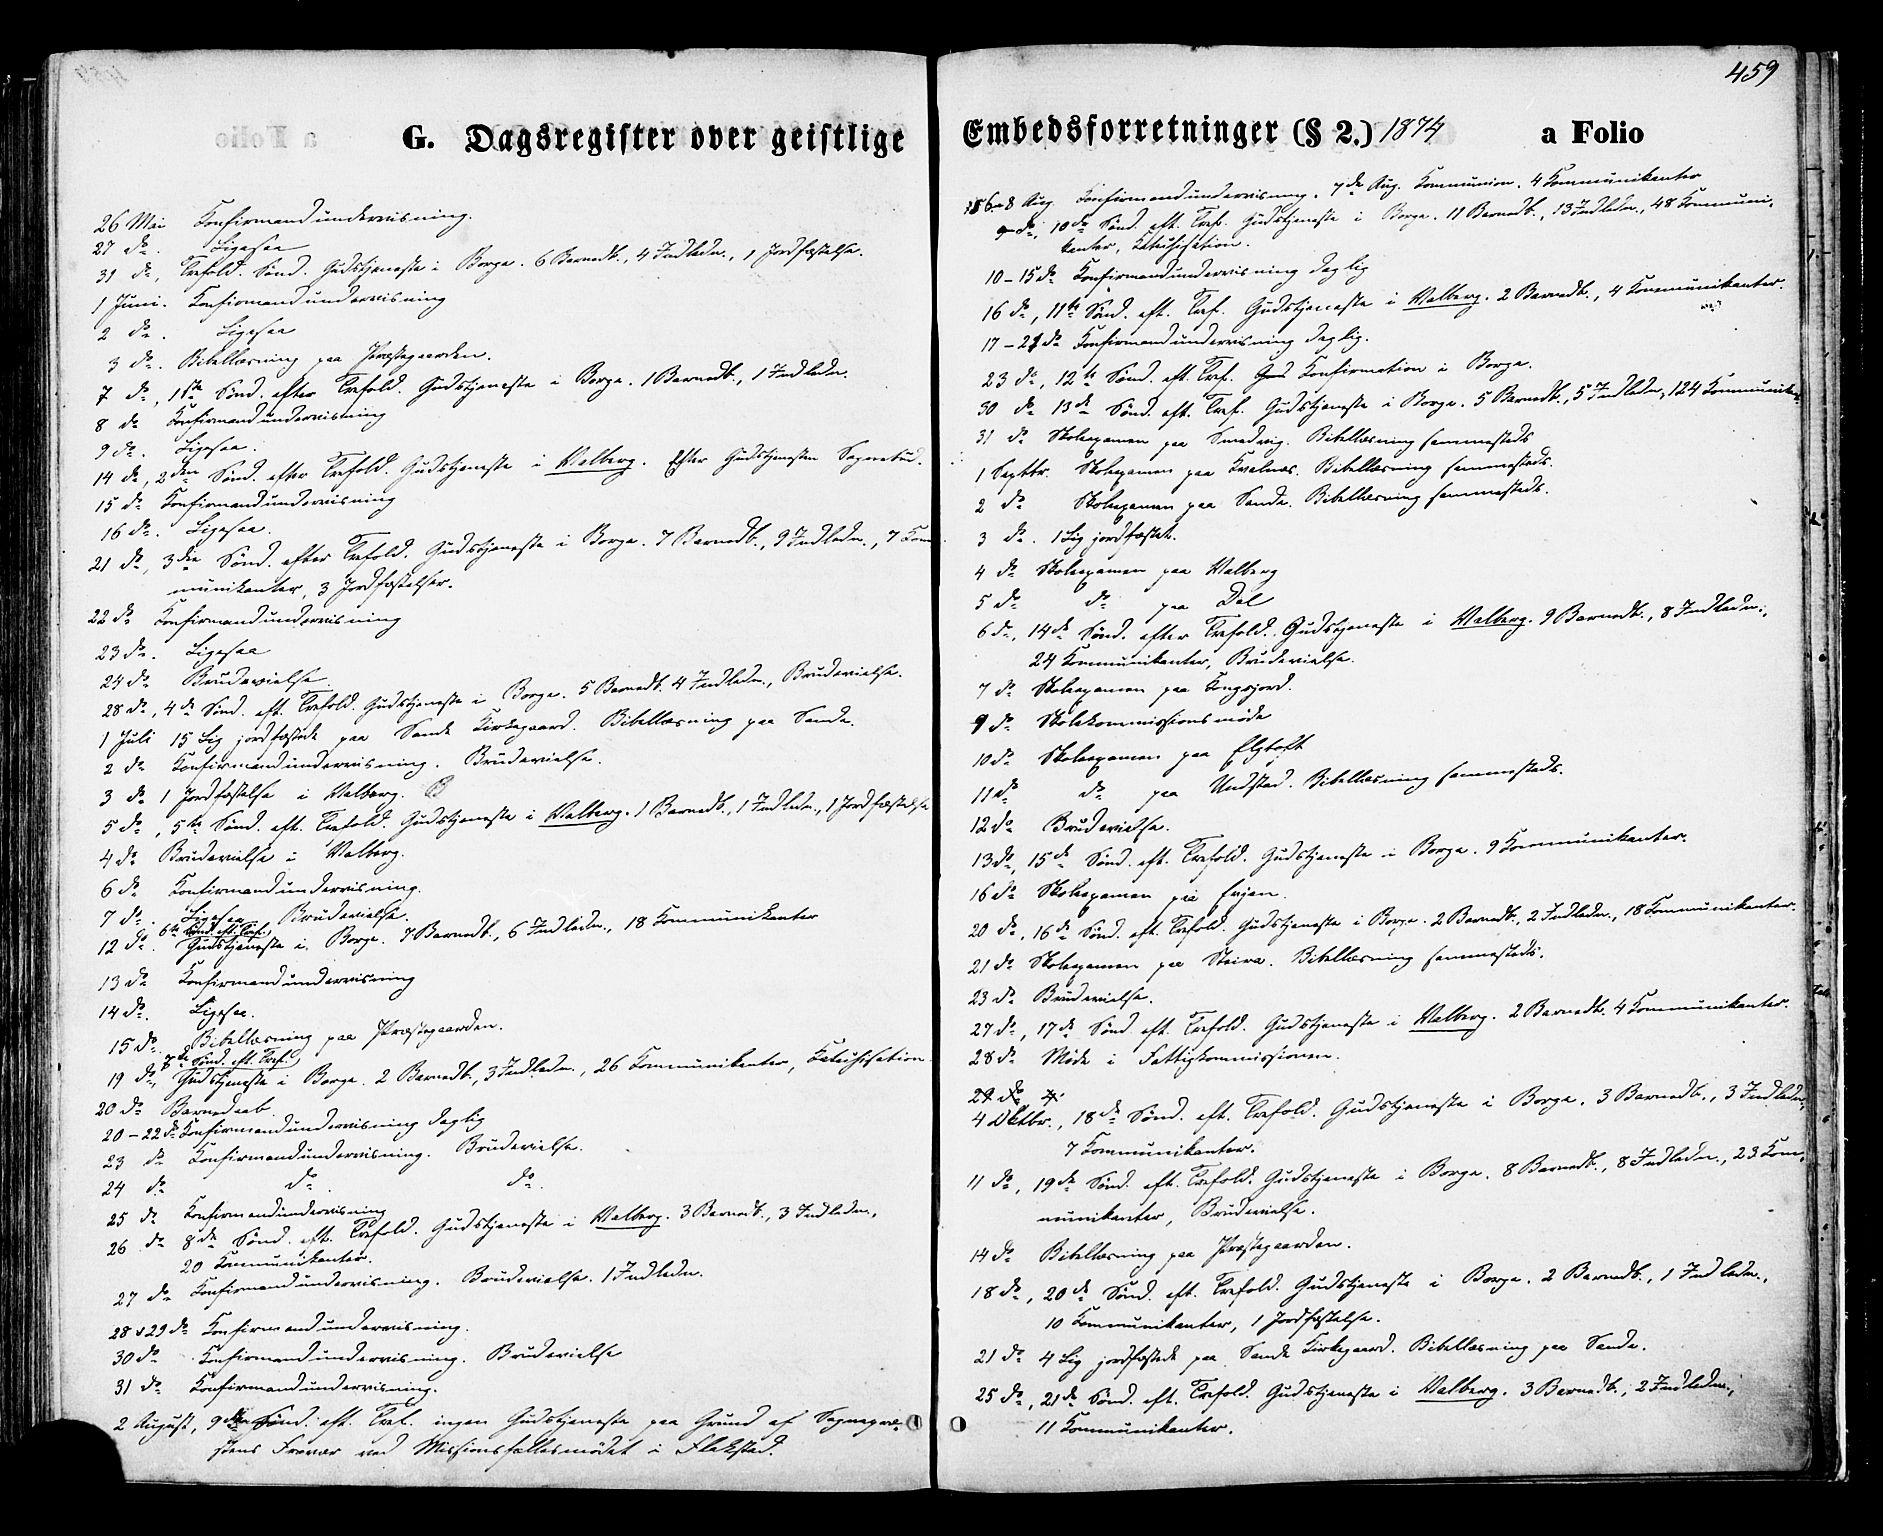 459
G. Dagsregister over geistlige Embedsforretninger (§ 2.) 1874 a Folio
26 Mai Konfirmandundervisning.
27 do. Ligesaa
31 do, Trefold. Sønd. Gudstjeneste i Borge. 6 Barnedb., 4 Indledn., 1 Jordfæstelse.
1 Juni. Konfirmandundervisning
2 do. Ligesaa
3 do. Bibellæsning paa Præstegaarden.
7 do, 1ste Sønd. efter Trefold. Gudstjeneste i Borge. 1 Barnedb., 1 Indledn.
8 do Konfirmandundervisning
9 do. Ligesaa.
14 do, 2den Sønd. efter Trefold. Gudstjeneste i Valberg. Efter Gudstjenesten Sognebud.
15 do Konfirmandundervisning
16 do. Ligesaa.
21 do, 3die Sønd. efter Trefold. Gudstjeneste i Borge. 7 Barnedb., 9 Indledn., 7 Kom
munikanter, 3 Jordfæstelser.
22 do Konfirmandundervisning
23 do. Ligesaa
24 do Brudevielse.
28 do, 4de Sønd. eft. Trefold. Gudstjeneste i Borge. 5 Barnedb. 4 Indledn., Brudevielse.
1 Juli 15 Lig jordfæstede paa Sande Kirkegaard. Bibellæsning paa Sande.
2 do Konfirmandundervisning. Brudevielse.
3 do 1 Jordfæstelse i Valberg.
5 do, 5te Sønd. eft. Trefold. Gudstjeneste i Valberg. 1 Barnedb., 1 Indledn., 1 Jordfæstelse
4 do Brudevielse i Valberg.
6 do Konfirmandundervisning.
7 do. Ligesaa Brudevielse.
6te Sønd. eft. Tref.
12 do. Gudstjeneste i Borge. 7 Barnedb., 6 Indledn., 18 Kommunikanter
13 do Konfirmandundervisning
14 do. Ligesaa.
15 do. Bibellæsning paa Præstegaarden.
7de Sønd. eft. Tref.
19 do, Gudstjeneste i Borge. 2 Barnedb., 3 Indledn., 26 Kommunikanter, Katechisation
20 do Barnedaab.
20-22 do Konfirmandundervisning daglig
23 do Konfirmandundervisning. Brudevielse.
24 do do. do.
25 do Konfirmandundervisning
26 do 8de Sønd. eft. Trefold. Gudstjeneste i Valberg. 3 Barnedb., 3 Indledn.,
20 Kommunikanter.
27 do Konfirmandundervisning. Brudevielse. 1 Indledn.
28 & 29 do Konfirmandundervisning.
30 do Konfirmandundervisning. Brudevielse
31 do Konfirmandundervisning.
2 August, 9de Sønd. eft. Tref. ingen Gudstjeneste paa Grund af Sognepræ-
stens Fravær ved Missionsfællesmødet i Flakstad.
6-8 Aug. Konfirmandundervisning. 7de Aug. Kommunion. 4 Kommunikanter
9 do, 10de Sønd. eft. Tref. Gudstjeneste i Borge. 11 Barnedb., 13 Indledn., 48 Kommuni-
kanter, Katechisation.
10-15 do Konfirmandundervisning daglig
16 do, 11te Sønd. eft. Tref. Gudstjeneste i Valberg. 2 Barnedb., 4 Kommunikanter.
17-21 do Konfirmandundervisning daglig.
23 do, 12te Sønd. eft. Tref. Gud Konfirmation i Borge.
30 do 13de Sønd. eft. Tref. Gudstjeneste i Borge. 5 Barnedb., 5 Indledn., 124 Kommunikan.
31 do Skoleexamen paa Smedvig. Bibellæsning sammesteds
1 Septbr. Skoleexamen paa Kvalnæs. Bibellæsning sammesteds.
2 do Skoleexamen paa Sande. Bibellæsning sammesteds.
3 do. 1 Lig jordfæstet.
4 do Skoleexamen paa Valberg
5 do do paa Dal
6 do, 14de Sønd. efter Trefold. Gudstjeneste i Valberg. 9 Barnedb., 8 Indledn.,
24 Kommunikanter, Brudevielse.
7 do Skoleexamen paa Kongsjord.
9 do Skolekommissionsmøde
10 do Skoleexamen paa Elgtoft
11 do do paa Undstad. Bibellæsning sammesteds.
12 do Brudevielse.
13 do, 15de Sønd. eft. Trefold. Gudstjeneste i Borge. 9 Kommunikanter.
16 do Skoleexamen paa Evjen.
20 do, 16de Sønd. eft. Trefold. Gudstjeneste i Borge. 2 Barnedb., 2 Indledn., 18 Kommunikanter.
21 do Skoleexamen paa Steira. Bibellæsning sammesteds.
23 do Brudevielse.
27 do, 17de Sønd. eft. Trefold. Gudstjeneste i Valberg. 2 Barnedb. 4 Kommunikanter.
28 do Møde i Fattigkommissionen.
29 do
4 Oktbr., 18de Sønd. eft. Trefold. Gudstjeneste i Borge. 3 Barnedb., 3 Indledn.,
7 Kommunikanter.
11 do, 19de Sønd. eft. Trefold. Gudstjeneste i Borge. 8 Barnedb., 8 Indledn., 23 Kom-
munikanter, Brudevielse.
14 do Bibellæsning paa Præstegaarden.
18 do, 20de Sønd. eft. Trefold. Gudstjeneste i Borge. 2 Barnedb., 1 Indledn.,
10 Kommunikanter, 1 Jordfæstelse.
21 do 4 Lig jordfæstede paa Sande Kirkegaard. Bibellæsning paa Sande.
25 do, 21de Sønd. eft. Trefold. Gudstjeneste i Valberg. 3 Barnedb., 2 Indledn.,
11 Kommunikanter.